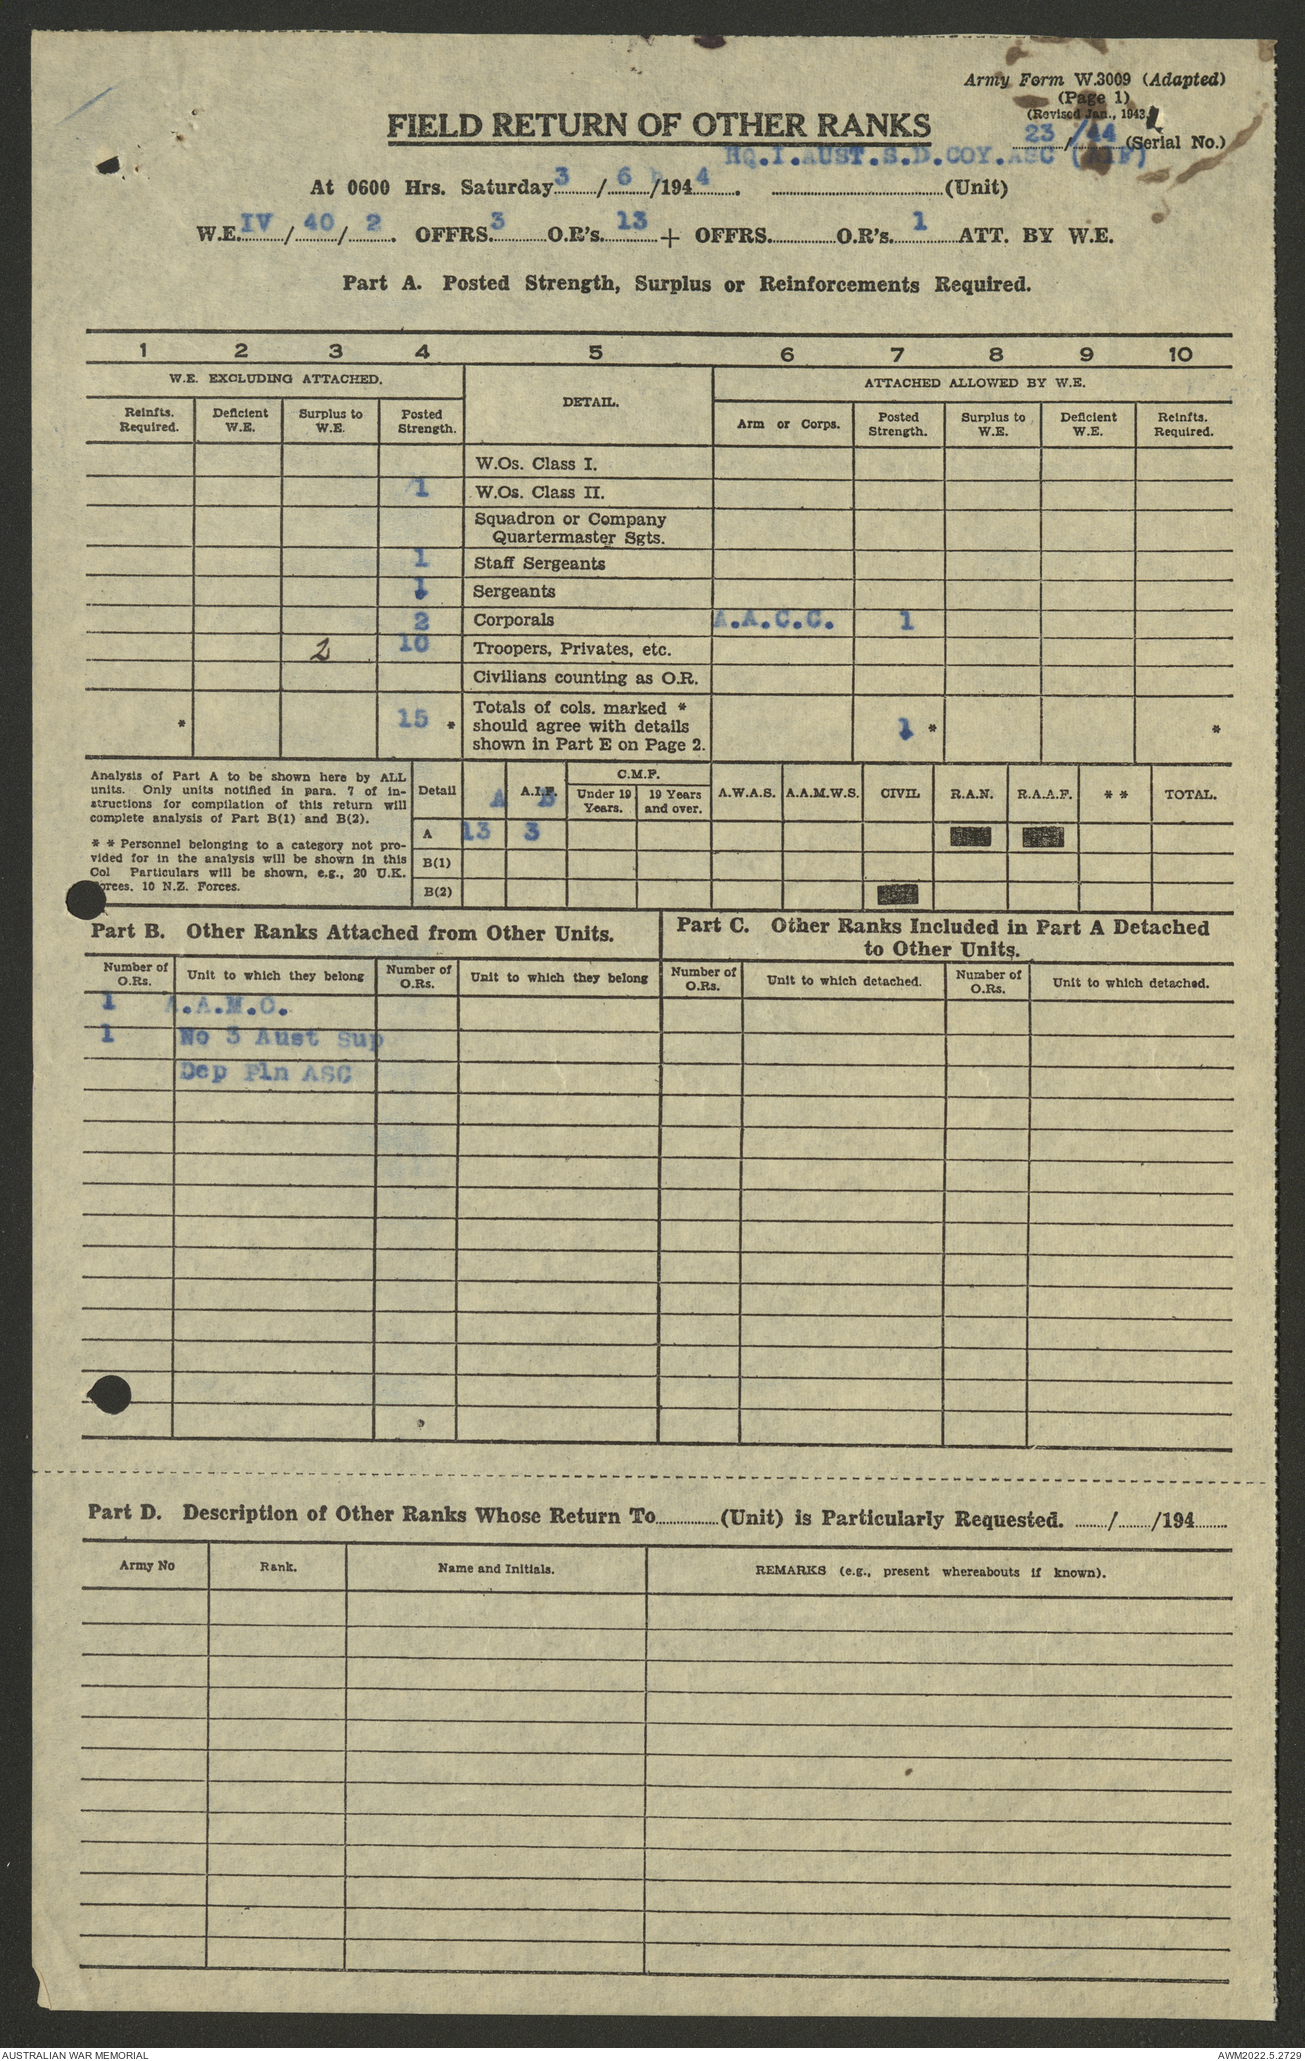 Army Form W.3009 (Adapted)
(Page 1)
(Revised Jan., 1943)
FIELD RETURN OF OTHER RANKS
23/44 (Serial No.)
HQ.I.AUST.S.D.COY.ASC (AIF)
At 0600 Hrs. Saturday 3/6/1944. (Unit)
W.E. IV/40/2. OFFRS. 3 O.R's. 13 + OFFRS. O.R's. 1 ATT. BY W.E.
Part A. Posted Strength, Surplus or Reinforcements Required.
1 2 3 4 5 6 7 8 9 10
W.E. EXCLUDING ATTACHED. DETAIL. ATTACHED ALLOWED BY W.E.
Reinfts. Required. Deficient W.E. Surplus to W.E. Posted Strength. Arm or Corps. Posted Strength. Surplus to W.E. Deficient W.E. Reinfts. Required.
W.Os. Class I.
1 W.Os. Class II.
Squadron or Company
Quartermaster Sgts.
1 Staff Sergeants
1 Sergeants
2 Corporals A.A.C.C. 1
2 10 Troopers, Privates, etc.
Civilians counting as O.R.
* 15 * Totals of cols. marked * 1 * *
should agree with details
shown in Part E on Page 2.
Analysis of Part A to be shown here by ALL
units. Only units notified in para. 7 of in-
structions for compilation of this return will
complete analysis of Part B(1) and B(2).
* * Personnel belonging to a category not pro-
vided for in the analysis will be shown in this
Col Particulars will be shown, e.g., 20 U.K.
Forces. 10 N.Z. Forces.
Detail A A.I.F. B C.M.F. Under 19 Years. 19 Years and over. A.W.A.S. A.A.M.W.S. CIVIL R.A.N. R.A.A.F. * * TOTAL.
A 13 3
B(1)
B(2)
Part B. Other Ranks Attached from Other Units.
Part C. Other Ranks Included in Part A Detached
to Other Units.
Number of O.Rs. Unit to which they belong Number of O.Rs. Unit to which they belong Number of O.Rs. Unit to which detached. Number of O.Rs. Unit to which detached.
1 A.A.M.C.
1 No 3 Aust Sup
Dep Pln ASC
Part D. Description of Other Ranks Whose Return To (Unit) is Particularly Requested. / /194
Army No Rank. Name and Initials. REMARKS (e.g., present whereabouts if known).
AUSTRALIAN WAR MEMORIAL AWM2022.5.2729